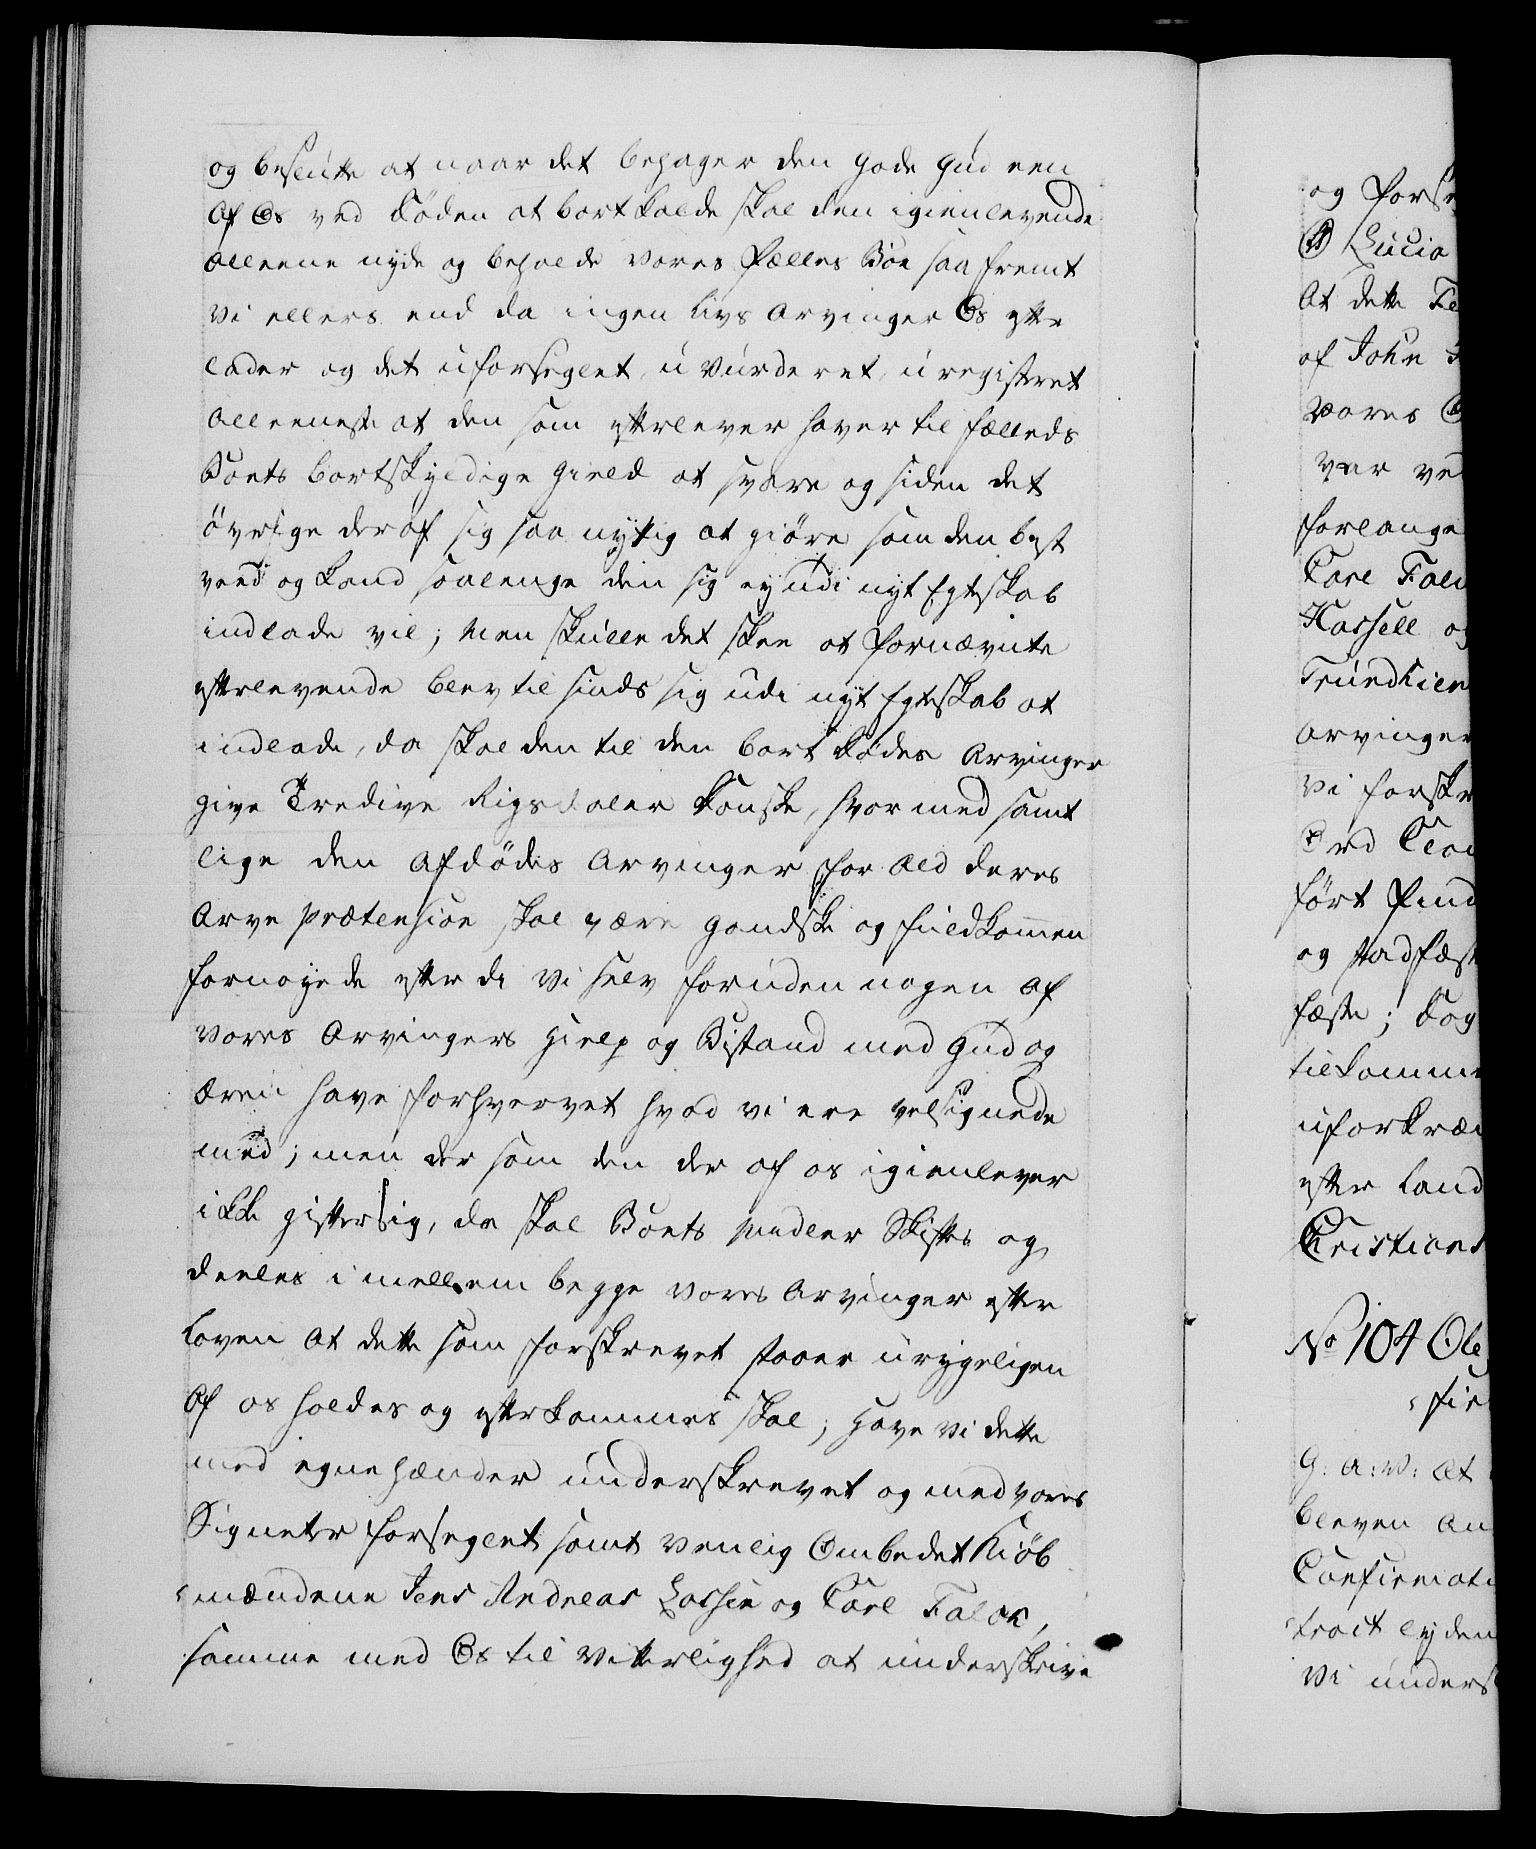 og beslutte at naar det behager den gode Gud een
af Os ved Døden at bortkalde skal den igienlevende
alleene nyde og beholde vores fælles Boe saa fremt
vi ellers end da ingen Livs Arvinger Os efter
lader og det uforseglet, u vurderet, u registeret
alleeneste at den som efterlever haver til fælleds
Boets bortskyldige Gield at svare og siden det
øvrige deraf sig saa nyttig at giøre som den best
veed og kand saalenge den sig ey udi nyt Egteskab
indlade vil; Men skulle det skee at fornævnte
efterlevende blev til sinds sig udi nyt Egteskab at
indlade, da skal den til den bort Dødes Arvinger
give Tredive Rigsdaler Danske, hvormed samt
lige den Afdødes Arvinger for ald deres
Arve prætension skal være gandske og fuldkommen
fornøyede efterdi vi selv foruden nogen af
vores Arvingers Hielp og Bistand med Gud og
Æren have forhvervet hvad vi ere velsignede
med; men der som den der af os igienlever
ikke gifter sig, da skal Boets Midler Skiftes og
deeles imellem begge vores Arvinger efter
Loven At dette som forskrevet staaer urygeligen
Af os holdes og efterkommes skal; Have vi dette
med egne Hænder underskrevet og med vores
Signeter forseglet samt venlig Ombedet Kiøb
mændene Jens Andreas Lassen og Carl Falck,
samme med Os til Vitterlighed at underskrive
og forse
Lucia
At dette
af John
Vores
forlange
Carl Fal
Hassell og
Trundhiem
Arvinger
vi forskr
ført
og stadfæst
fæste; Dog
tilkomme
uforkræn
efter Land
Christians
No 104 Ole
G: A: V: At
bleven An
Confirmati
tract lyden
Vi unders